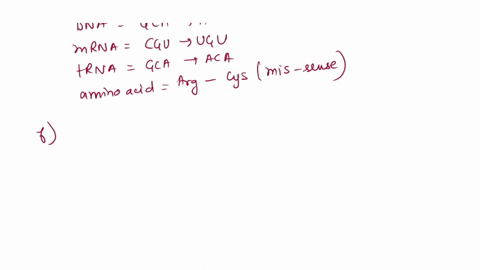 DNA = GCA →
mRNA = CGU → UGU
tRNA = GCA → ACA
amino acid = Arg - Cys (mis-sense)
f)